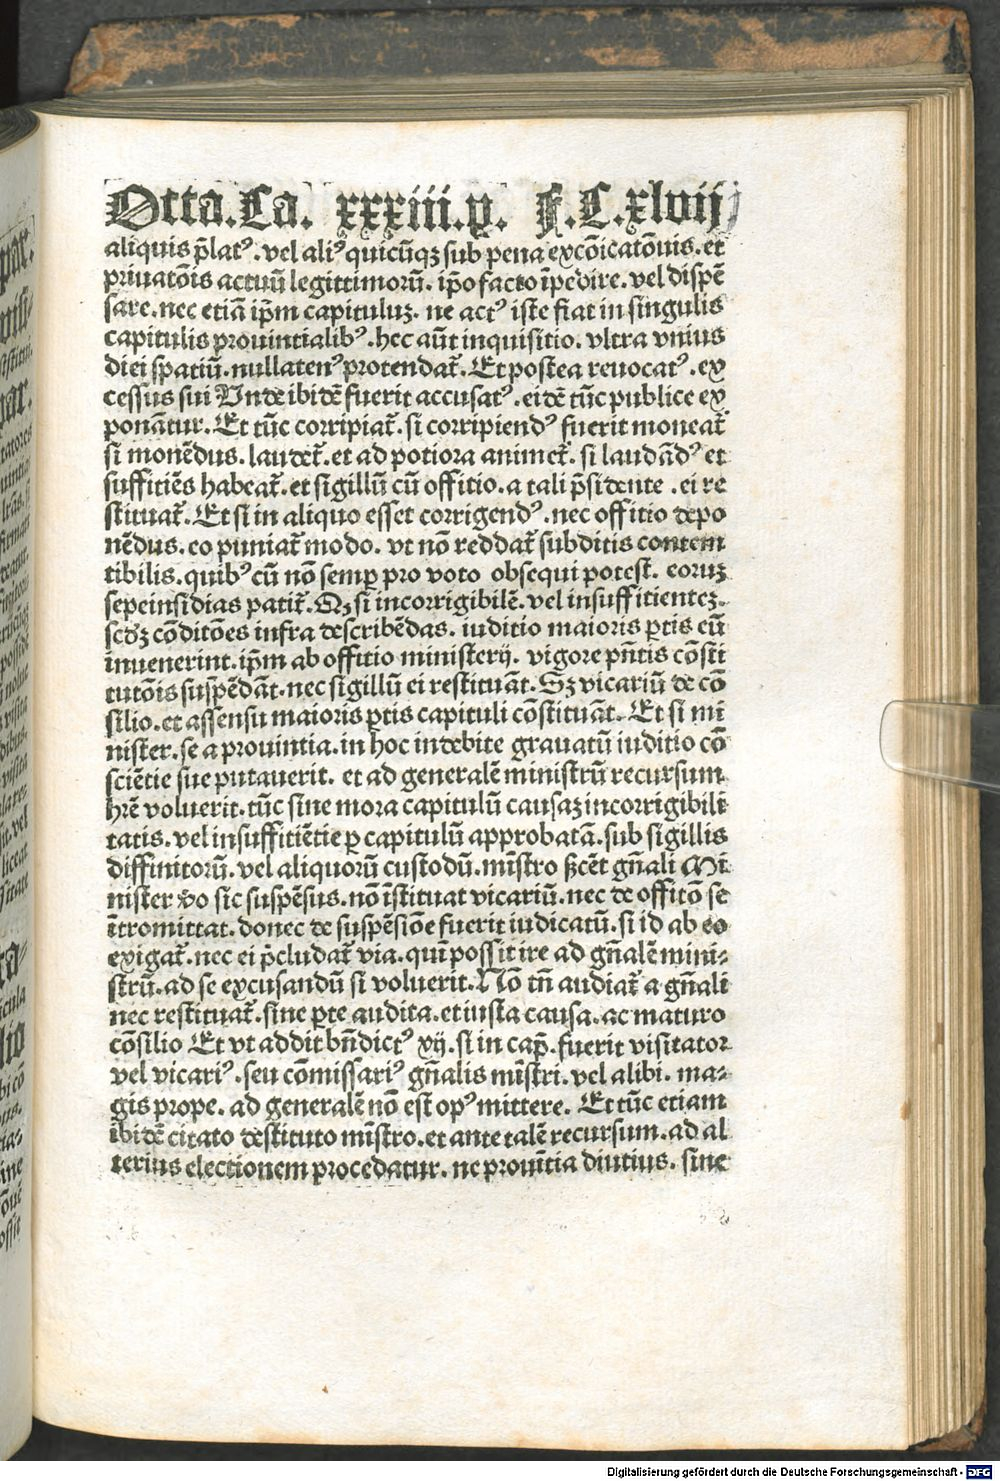 Octa. Ca. xxxiii. p. F. C. xlvij
aliquis p̄latꝰ. vel aliꝰ quicūqꝫ sub pena excōicatōnis. et
priuatōis actuū legittimorū. ip̄o facto īpedire. vel dispē
sare. nec etiā ip̄m capituluꝫ. ne actꝰ iste fiat in singulis
capitulis prouintialibꝰ. hec aūt inquisitio. vltra vnius
diei spatiū. nullatenꝰ protendat̄. Et postea reuocatꝰ. ex
cessus sui Vnde ibidē fuerit accusatꝰ. eidē tūc publice ex
ponātur. Et tūc corripiat̄. si corripiendꝰ fuerit moneat̄
si monēdus. laudet̄. et ad potiora animet̄. si laudādꝰ et
suffitiēs habeat̄. et sigillū cū offitio. a tali p̄sidente. ei re
stituat̄. Et si in aliquo esset corrigendꝰ. nec offitio depo
nēdus. eo puniat̄ modo. vt nō reddat̄ subditis contem
tibilis. quibꝰ cū nō semꝑ pro voto obsequi potest. eoruꝫ
sepe insidias patit̄. Qꝫ si incorrigibilē. vel insuffitienteꝫ.
scd̄ꝫ cōditōes infra describēdas. iuditio maioris ꝑtis eū
inuenerint. ip̄m ab offitio ministerij. vigore pn̄tis cōsti
tutōis suspēdāt. nec sigillū ei restituāt. Sꝫ vicariū de cō
silio. et assensu maioris ꝑtis capituli cōstituāt. Et si mi
nister. se a prouintia. in hoc indebite grauatū iuditio cō
sciētie sue putauerit. et ad generalē ministrū recursum
hr̄e voluerit. tūc sine mora capitulū causaꝫ incorrigibili
tatis. vel insuffitiētie ꝑ capitulū approbatā. sub sigillis
diffinitorū. vel aliquorū custodū. mīstro ßcēt gn̄ali Mi
nister v̄o sic suspēsus. nō īstituat vicariū. nec de offitō se
ītromittat. donec de suspēsiōe fuerit iudicatū. si id ab eo
exigat̄. nec ei p̄cludat̄ via. quī possit ire ad gn̄alē mini-
strū. ad se excusandū si voluerit. Nō tn̄ audiat̄ a gn̄ali
nec restituat̄. sine ꝑte audita. et iusta causa. ac maturo
cōsilio Et vt addit bn̄dictꝰ xij. si in cap̄. fuerit visitator
vel vicariꝰ. seu cōmissariꝰ gn̄alis mīstri. vel alibi. ma-
gis prope. ad generalē nō est opꝰ mittere. Et tūc etiam
ibidē citato destituto mīstro. et ante talē recursum. ad al
terius electionem procedatur. ne prouītia diutius. sine
Digitalisierung gefördert durch die Deutsche Forschungsgemeinschaft - DFG